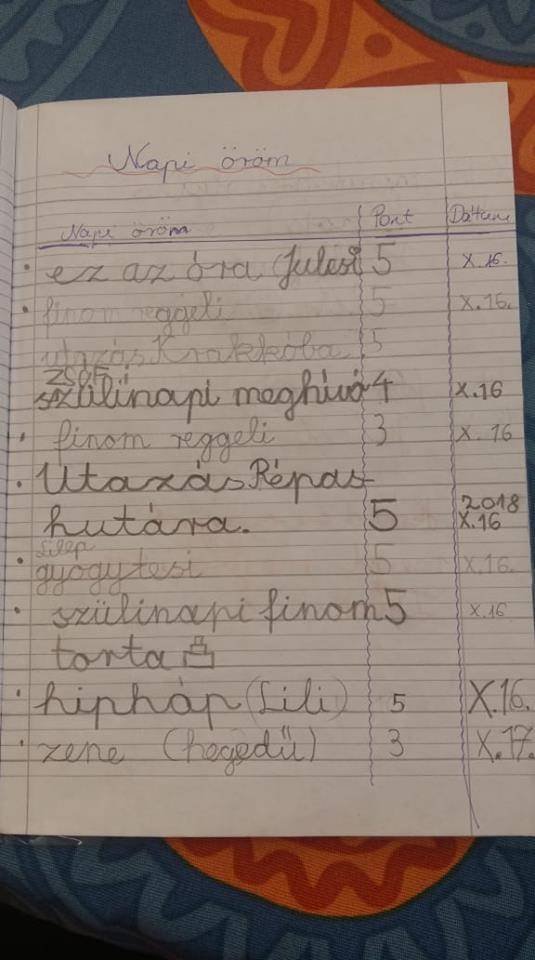 Napi öröm
Napi öröm Pont Dátum
· ez az óra (Julcsi 5 X.16.
· finom reggeli 5 X.16.
utazás Krakkóba 5
ZSÓFI
szülinapi meghívó 4 X.16
· finom reggeli 3 X.16
· Utazás Répás-
hutára. 5 2018 X.16
· gyógytesi 5 X.16.
· szülinapi finom 5 X.16
torta
· hipháp (Lili) 5 X.16.
· zene (hegedű) 3 X.17.